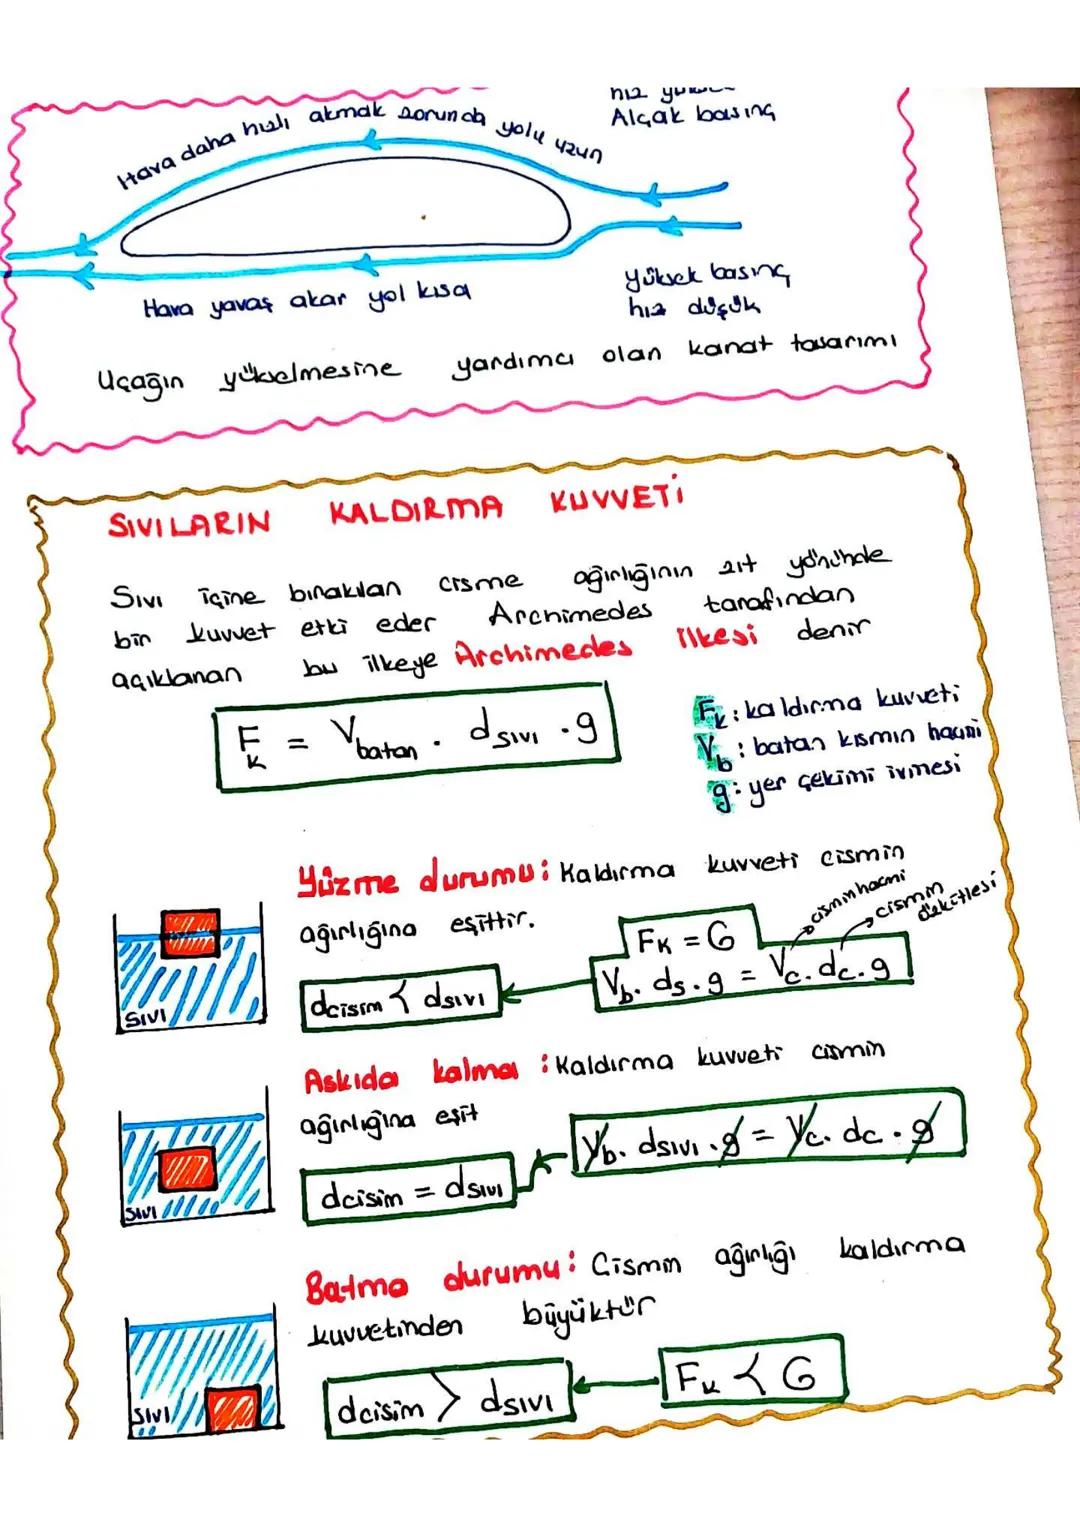 Alçak basınç
Hava daha hızlı akmak zorunda yolu uzun
Yüksek basınç
hız düşük
Hava yavaş akar yol kısa
Uçağın yükselmesine yardımcı olan kanat tasarımı
SIVILARIN KALDIRMA KUVVETİ
Sıvı içine bırakılan cisme ağırlığının zıt yönünde
bir kuvvet etki eder Archimedes tarafından
açıklanan bu ilkeye Archimedes ilkesi denir
Fk = Vbatan . dsıvı . g
Fk : kaldırma kuvveti
Vb : batan kısmın hacmi
g : yer çekimi ivmesi
Yüzme durumu : Kaldırma kuvveti cismin
ağırlığına eşittir.
cismin hacmi
cismin özkütlesi
FK = G
Vb . ds . g = Vc . dc . g
dcisim < dsıvı
SIVI
Askıda kalma : Kaldırma kuvveti cismin
ağırlığına eşit
Vb . dsıvı . g = Vc . dc . g
dcisim = dsıvı
SIVI
Batma durumu : Cismin ağırlığı kaldırma
kuvvetinden büyüktür
Fk < G
dcisim > dsıvı
SIVI